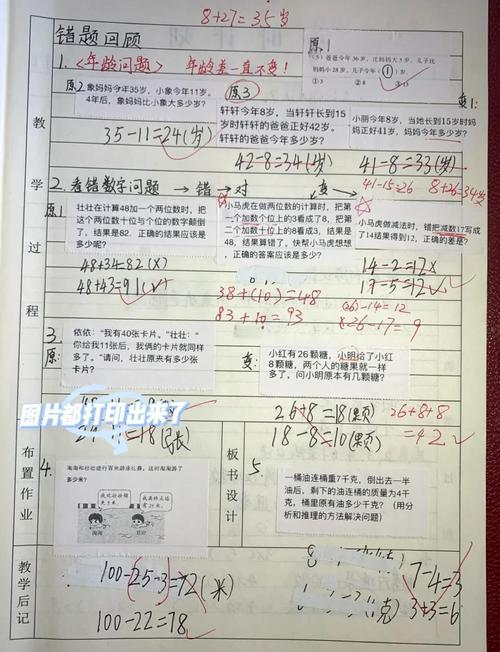 8+27=35岁
错题回顾
1.《年龄问题》 年龄差一直不变!
原1
爸爸今年36岁,比妈妈大3岁,儿子比
妈妈小28岁,儿子今年(①)岁。
原2
象妈妈今年35岁,小象今年11岁。
4年后,象妈妈比小象大多少岁?
35-11=24(岁)
原3
轩轩今年8岁,当轩轩长到15
岁时轩轩的爸爸正好42岁。
轩轩的爸爸今年多少岁?
42-8=34(岁)
变1:
小丽今年8岁,当她长到15岁时妈
妈正好41岁,妈妈今年多少岁?
41-8=33(岁)
41-15=26 8+26=34岁
教学过程
2.看错数字问题 → 错 → 对 变
原1
壮壮在计算48加一个两位数时,把
这个两位数十位与个位的数字颠倒
了,结果是82. 正确的结果应该是
多少呢?
48+34=82(X)
48+43=91(√)
小马虎在做两位数的计算时,把第
一个加数个位上的3看成了8,把第
二个加数十位上的8看成3,结果是
48,结果算错了。快帮小马虎想想,
正确的答案应该是多少?
38+(10)=48
83+10=93
小马虎做减法时,错把减数17写成
了14结果得到12,正确的差是?
14-2=17X
17-5=12
(26)-14=12
26-17=9
3.
依依:“我有40张卡片。”壮壮:“
你给我11张后,我俩的卡片就同样
多了。”请问,壮壮原来有多少张
卡片?
=18(张)
变:
小红有26颗糖,小明给了小红
8颗糖,两个人的糖果就一样
多了,问小明原本有几颗糖?
26+8=18(颗)
18-8=10(颗)
26+8+8
=42
图片都打印出来了
布置作业
4.
淘淘和壮壮进行百米游泳比赛,这时淘淘游了
多少米?
我比壮壮领
先3米。
我离终点还
有25米。
淘淘
壮壮
板书设计
5.
一桶油连桶重7千克,倒出去一半
油后,剩下的油连桶的质量为4千
克,桶里原有油多少千克?(用分
析和推理的方法解决问题)
教学后记
100-25-3=72(米)
100-22=78
7-4=3
3+3=6